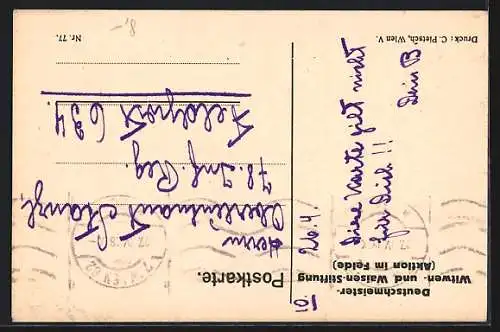 Deutschmeister-
Witwen- und Waisen-Stiftung
(Aktion im Felde)
Postkarte.
26. 4.
Diese Karte gilt nicht
für Dich!!
Dein B
Herrn
Oberleutnant
78. Inf. Reg.
Feldpost 634
Nr. 77.
Druck: C. Pietsch, Wien V.
8,-